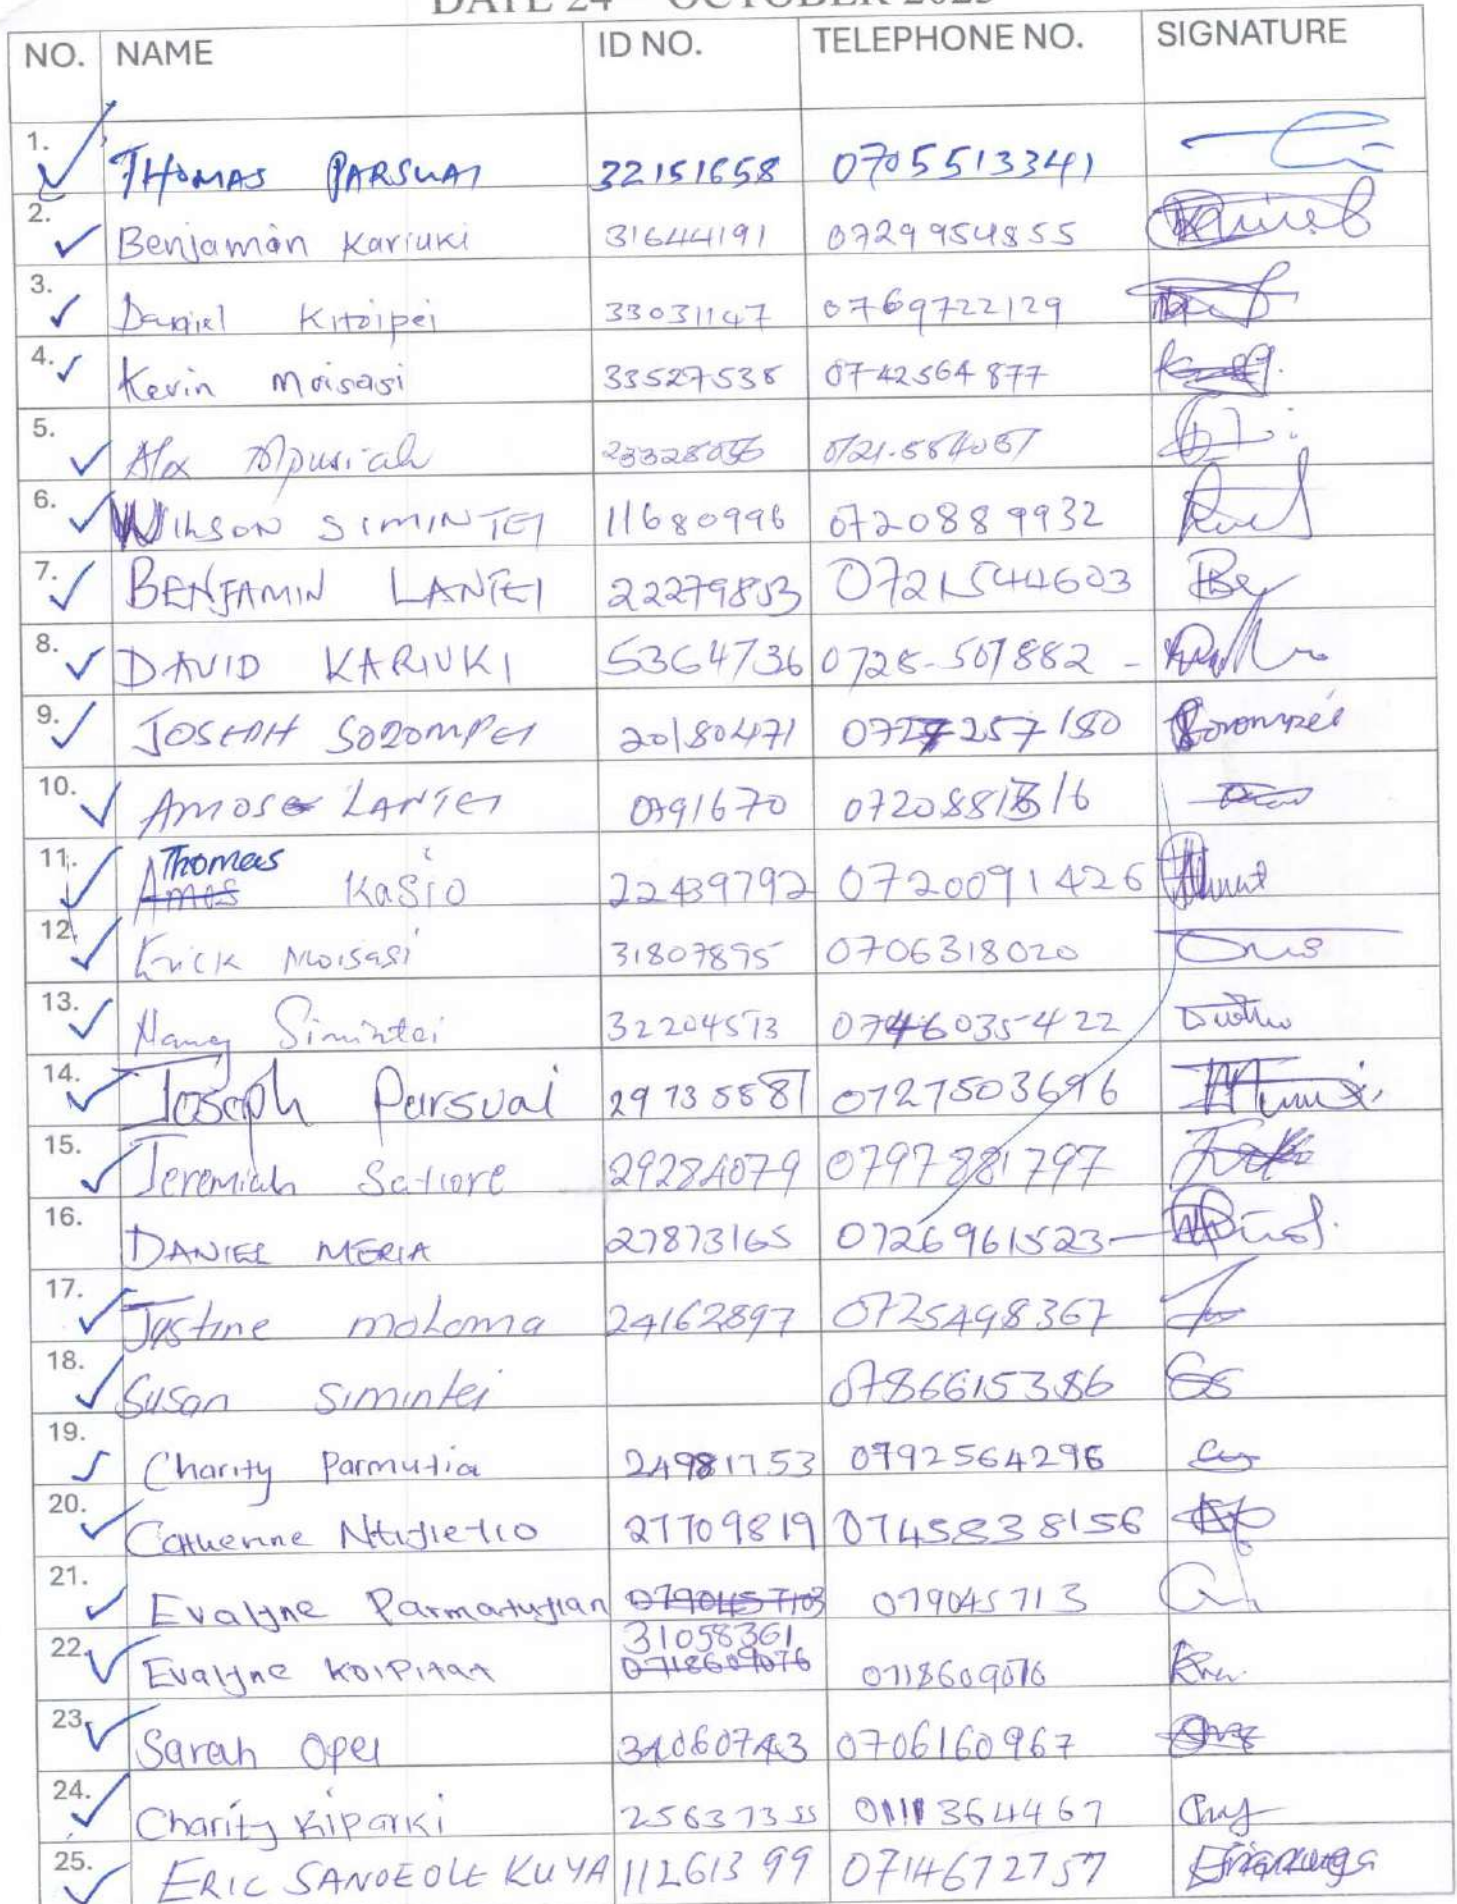 DATE 24 OCTOBER 2025
NO. NAME ID NO. TELEPHONE NO. SIGNATURE
1. THOMAS PARSUAI 32151658 0705513341
2. Benjamin Kariuki 31644191 0729954855
3. Daniel Kitoipei 33031147 0769722129
4. Kevin Moisasi 33527538 0742564877
5. Alex
6. WILSON SIMINTEI 11680996 0720889932
7. BENJAMIN LANTEI 22279853 0721544603
8. DAVID KARIUKI 5364736 0728-507882 -
9. JOSEPH SOROMPEI 20180471 0727257180 Sorompei
10. AMOS LANTEI
11. Thomas
Amos Kasio 22439792 0720091426
12. Erick Moisasi 31807895 0706318020
13. Nancy Simintei 32204573 0746035422
14. Joseph Parsuai 29735587 0727503696
15. Jeremiah Satiore 29284079 0797881797
16. DANIEL MERIA 27873165 0726961523
17. Justine moloma 24162897 0725498367
18. Susan Simintei 0786615386
19. Charity Parmutia 24981753 0792564296
20. Catherine Ntijietio 27709819 0745838156
21. Evalyne Parmatutian 0790457103 079045713
22. Evalyne KOIPITAT 31058361
0718609076 0718609076
23. Sarah Opei 34060743 0706160967
24. Charity Kiparki 25637355 0111364467
25. ERIC SANOEOLE KUYA 11261399 0714672757